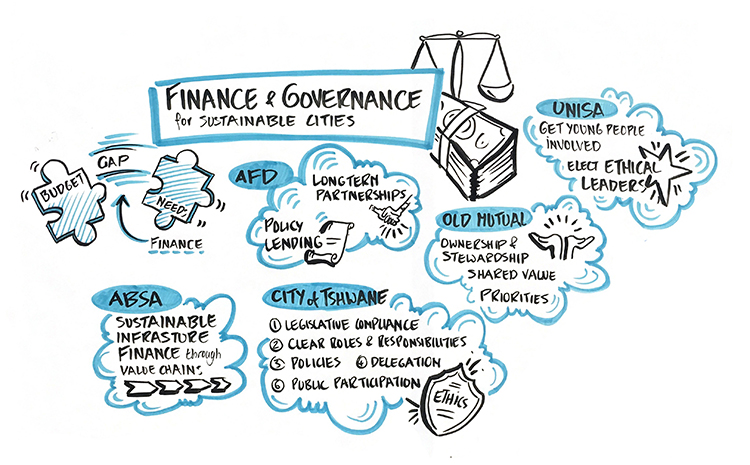 FINANCE & GOVERNANCE
for SUSTAINABLE CITIES
BUDGET
GAP
NEEDS
FINANCE
AFD
LONGTERM
PARTNERSHIPS
POLICY
LENDING
UNISA
GET YOUNG PEOPLE
INVOLVED
ELECT ETHICAL
LEADERS
OLD MUTUAL
OWNERSHIP &
STEWARDSHIP
SHARED VALUE
PRIORITIES
ABSA
SUSTAINABLE
INFRASTURE
FINANCE through
VALUE CHAINS
CITY of TSHWANE
① LEGISLATIVE COMPLIANCE
② CLEAR ROLES & RESPONSIBILITIES
③ POLICIES ④ DELEGATION
⑥ PUBLIC PARTICIPATION
ETHICS